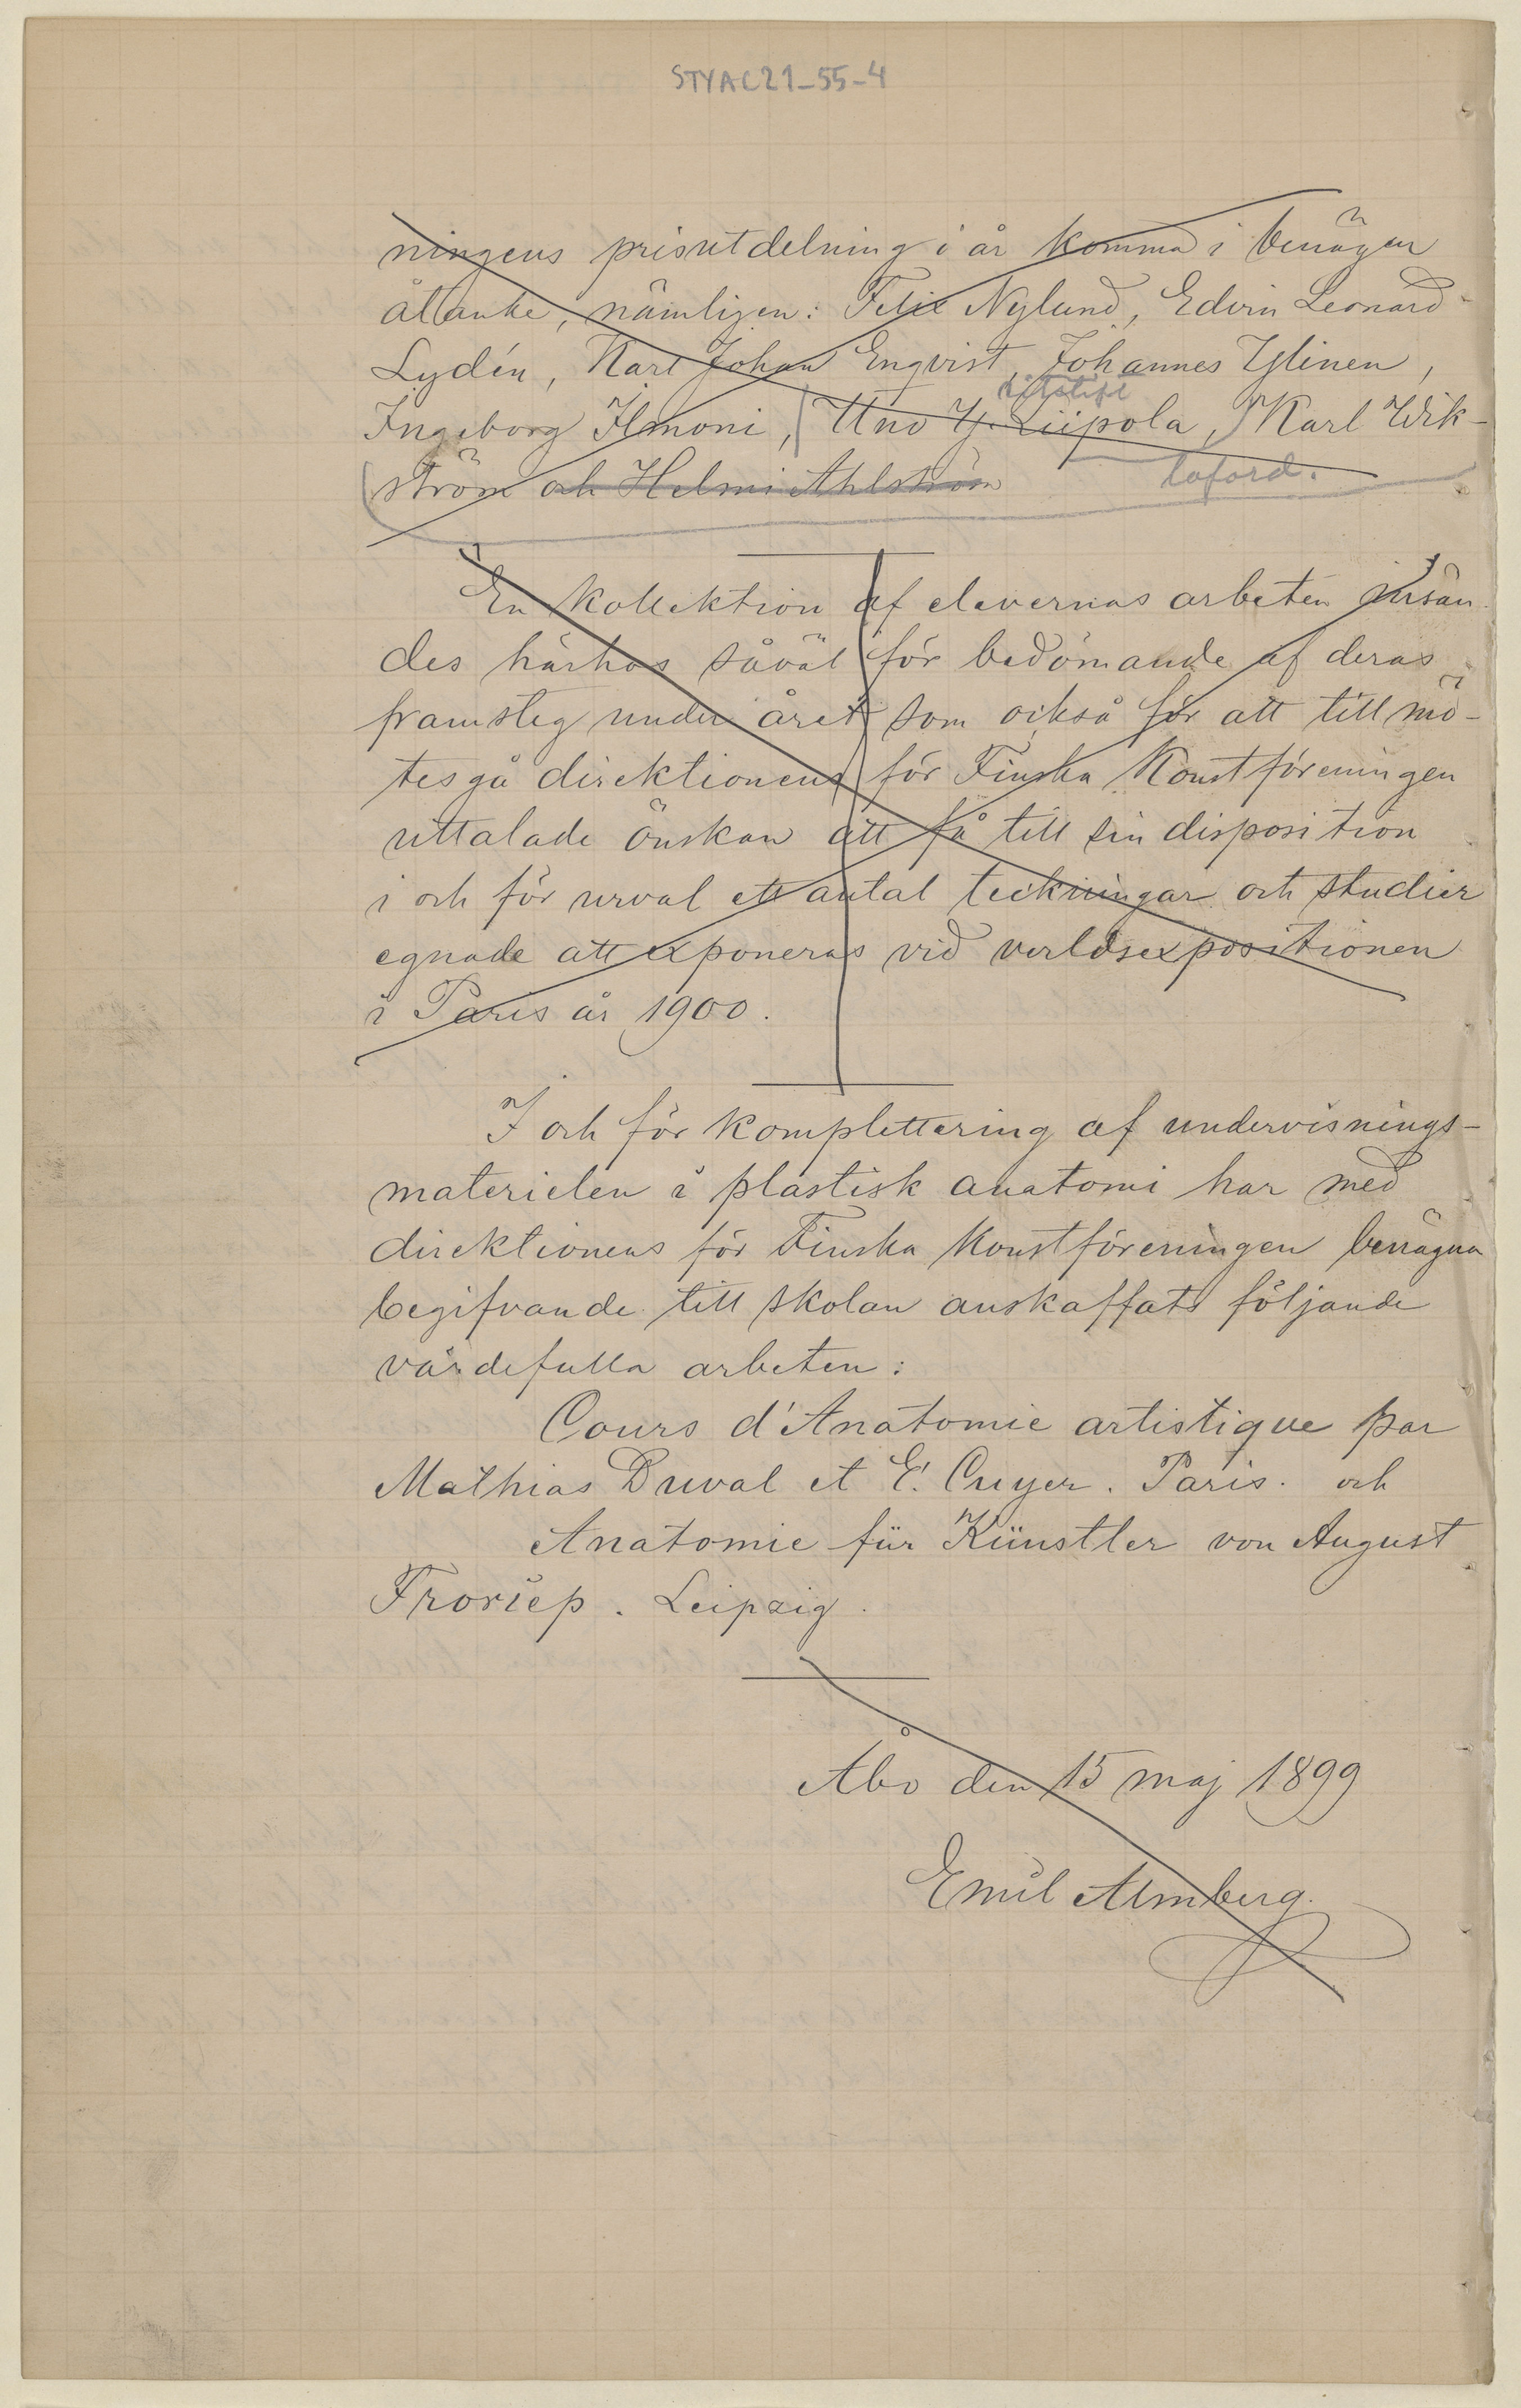 STYAC21-55-4
ningens prisutdelning i år komma i benägen
åtanke, nämligen: Felix Nylund, Edvin Leonard
Lydén, Karl Johan Enqvist, Johannes Ylinen,
ritstift
Ingeborg Ilmoni, Uno Y. Liipola, Karl Wik-
ström och Helmi Ahlström
loford.
En kollektion af elevernas arbeten insän-
des härhos såväl för bedömande af deras
framsteg under året som också för att till mö-
tesgå direktionens för Finska Konstföreningen
uttalade önskan att få till sin disposition
i och för urval ett antal teckningar och studier
egnade att exponeras vid verldsexpositionen
i Paris år 1900.
I och för komplettering af undervisnings-
materielen i plastisk anatomi har med
direktionens för Finska Konstföreningen benägna
begifvande till skolan anskaffats följande
värdefulla arbeten:
Cours d'Anatomie artistique par
Mathias Duval et E. Cuyer. Paris. och
Anatomie für Künstler von August
Froriep. Leipzig.
Åbo den 15 maj 1899
Emil Almberg.